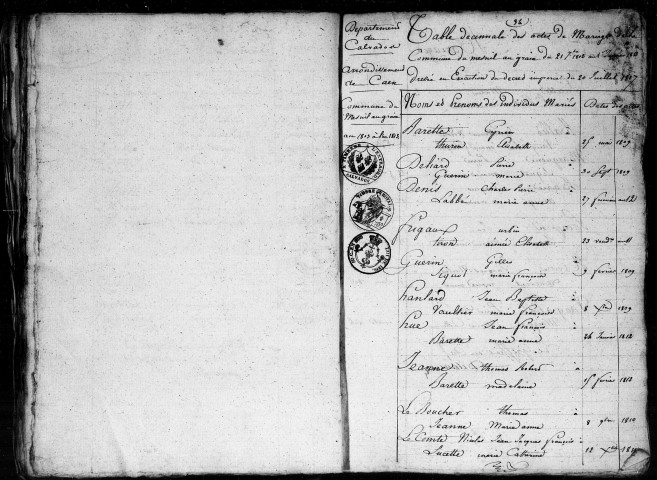 36
Departement
du
Calvados
Arrondissement
de Caen
Commune du
Mesnil au grain
Table decennale des actes de Mariage de la
Commune du mesnil au grain du 21 7bre 1802 au 1er
Dressée en Execution du decret imperial du 20 Juillet 1807
Noms et Prenoms des Individus Mariés
Dates des actes
Barette à
thurin Elisabeth 25 mai 1809
Dehard Pierre à
Guerin marie 30 Sept 1809
Denis Charles Pierre à
Labbé marie anne 27 fevrier
frigaux urbin à
tiron aimée 23 vendre an 11
Guerin Gilles à
Siquot marie françoise 9 fevrier 1809
hanlard Jean Baptiste à
Vaultier marie françoise 8 Xbre 1809
hue Jean françois à
Barette marie anne 26 1812
Jeanne thomas Robert à
Barette madelaine 25 fevrier 1812
Le Boucher thomas à
Jeanne Marie anne 8 9bre 1810
Le Comte Nicolas Jean Jacques françois à
Lucette marie Catherine 12 Xbre